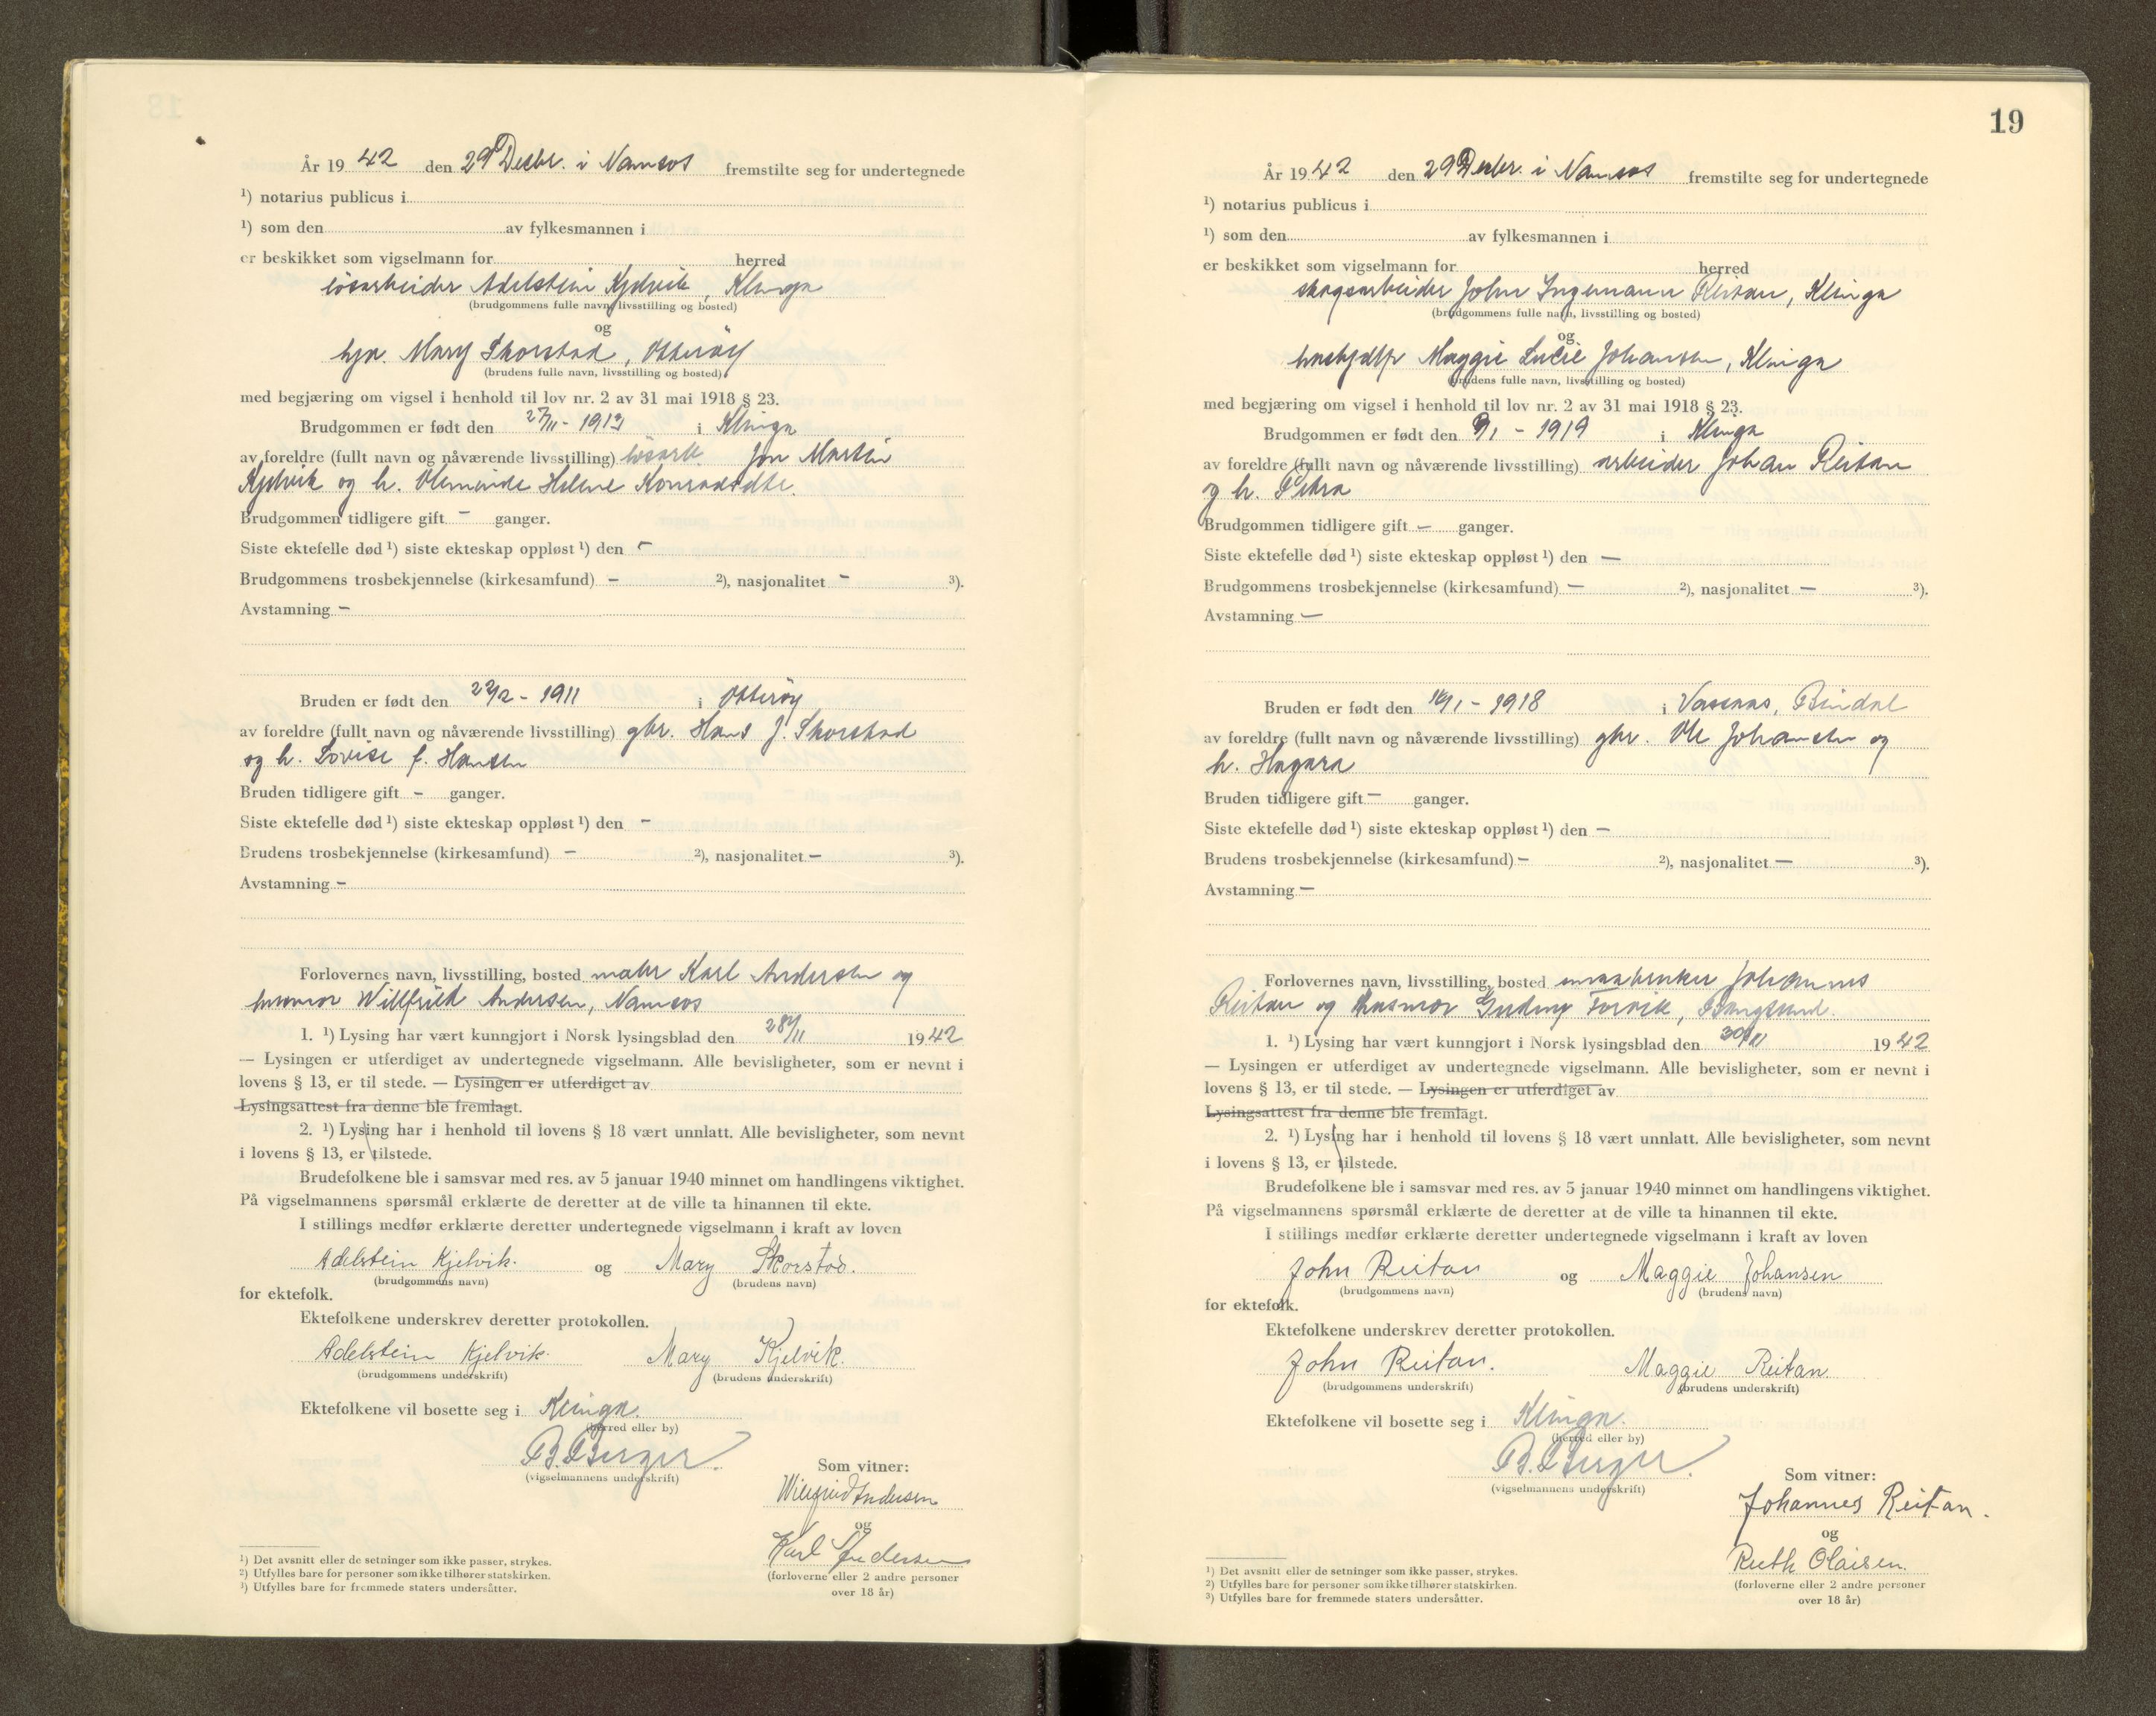 År 19 42 den 29 Desbr. i Namsos fremstilte seg for undertegnede
¹) notarius publicus i
¹) som den av fylkesmannen i
er beskikket som vigselmann for herred
løsarbeider Adelstein Kjelvik, Klinga
(brudgommens fulle navn, livsstilling og bosted)
og
hjv. Mary Skorstad, Otterøy
(brudens fulle navn, livsstilling og bosted)
med begjæring om vigsel i henhold til lov nr. 2 av 31 mai 1918 § 23.
Brudgommen er født den 27/11 - 1913 i Klinga
av foreldre (fullt navn og nåværende livsstilling) løsarb. Jon Martin
Kjelvik og h. Helene Konradsdtr.
Brudgommen tidligere gift - ganger.
Siste ektefelle død ¹) siste ekteskap oppløst ¹) den -
Brudgommens trosbekjennelse (kirkesamfund) - ²), nasjonalitet - ³).
Avstamning -
Bruden er født den 22/2 - 1911 i Otterøy
av foreldre (fullt navn og nåværende livsstilling) gbr. Hans J. Skorstad
og h. Lovise f. Hansen
Bruden tidligere gift - ganger.
Siste ektefelle død ¹) siste ekteskap oppløst ¹) den -
Brudens trosbekjennelse (kirkesamfund) - ²), nasjonalitet - ³).
Avstamning -
Forlovernes navn, livsstilling, bosted maler Karl Andersen og
husmor Willfried Andersen, Namsos
1. ¹) Lysing har vært kunngjort i Norsk lysingsblad den 28/11 1942
— Lysingen er utferdiget av undertegnede vigselmann. Alle bevisligheter, som er nevnt i
lovens § 13, er til stede. — Lysingen er utferdiget av
Lysingsattest fra denne ble fremlagt.
2. ¹) Lysing har i henhold til lovens § 18 vært unnlatt. Alle bevisligheter, som nevnt
i lovens § 13, er tilstede.
Brudefolkene ble i samsvar med res. av 5 januar 1940 minnet om handlingens viktighet.
På vigselmannens spørsmål erklærte de deretter at de ville ta hinannen til ekte.
I stillings medfør erklærte deretter undertegnede vigselmann i kraft av loven
Adelstein Kjelvik. og Mary Skorstad.
(brudgommens navn) (brudens navn)
for ektefolk.
Ektefolkene underskrev deretter protokollen.
Adelstein Kjelvik. Mary Kjelvik.
(brudgommens underskrift) (brudens underskrift)
Ektefolkene vil bosette seg i Klinga.
(herred eller by)
B. Berger.
(vigselmannens underskrift)
Som vitner:
Willfried Andersen
og
Karl Andersen
(forloverne eller 2 andre personer
over 18 år)
¹) Det avsnitt eller de setninger som ikke passer, strykes.
²) Utfylles bare for personer som ikke tilhører statskirken.
³) Utfylles bare for fremmede staters undersåtter.
19
År 19 42 den 29 Desbr. i Namsos fremstilte seg for undertegnede
¹) notarius publicus i
¹) som den av fylkesmannen i
er beskikket som vigselmann for herred
skogsarbeider John Ingemann Reitan, Klinga
(brudgommens fulle navn, livsstilling og bosted)
og
hushjelp Maggie Lucie Johansen, Klinga
(brudens fulle navn, livsstilling og bosted)
med begjæring om vigsel i henhold til lov nr. 2 av 31 mai 1918 § 23.
Brudgommen er født den 9/1 - 1919 i Klinga
av foreldre (fullt navn og nåværende livsstilling) arbeider Johan Reitan
og h. Petra
Brudgommen tidligere gift - ganger.
Siste ektefelle død ¹) siste ekteskap oppløst ¹) den —
Brudgommens trosbekjennelse (kirkesamfund) — ²), nasjonalitet — ³).
Avstamning —
Bruden er født den 1918 i Vassaas, Bindal
av foreldre (fullt navn og nåværende livsstilling) gbr. Ole Johansen og
h. Hagara
Bruden tidligere gift — ganger.
Siste ektefelle død ¹) siste ekteskap oppløst ¹) den —
Brudens trosbekjennelse (kirkesamfund) — ²), nasjonalitet — ³).
Avstamning —
Forlovernes navn, livsstilling, bosted småbruker Johannes
Reitan og husmor Gudny Forvik, Bangsund.
1. ¹) Lysing har vært kunngjort i Norsk lysingsblad den 30/11 1942
— Lysingen er utferdiget av undertegnede vigselmann. Alle bevisligheter, som er nevnt i
lovens § 13, er til stede. — Lysingen er utferdiget av
Lysingsattest fra denne ble fremlagt.
2. ¹) Lysing har i henhold til lovens § 18 vært unnlatt. Alle bevisligheter, som nevnt
i lovens § 13, er tilstede.
Brudefolkene ble i samsvar med res. av 5 januar 1940 minnet om handlingens viktighet.
På vigselmannens spørsmål erklærte de deretter at de ville ta hinannen til ekte.
I stillings medfør erklærte deretter undertegnede vigselmann i kraft av loven
John Reitan og Maggie Johansen
(brudgommens navn) (brudens navn)
for ektefolk.
Ektefolkene underskrev deretter protokollen.
John Reitan. Maggie Reitan.
(brudgommens underskrift) (brudens underskrift)
Ektefolkene vil bosette seg i Klinga.
(herred eller by)
B. Berger.
(vigselmannens underskrift)
Som vitner:
Johannes Reitan.
og
Ruth Olaisen.
(forloverne eller 2 andre personer
over 18 år)
¹) Det avsnitt eller de setninger som ikke passer, strykes.
²) Utfylles bare for personer som ikke tilhører statskirken.
³) Utfylles bare for fremmede staters undersåtter.